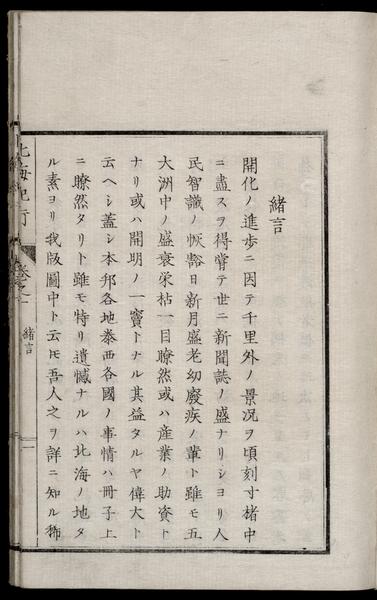 緒言
開化ノ進歩ニ因テ千里外ノ景況ヲ頃刻寸楮中
ニ盡スヲ得嘗テ世ニ新聞誌ノ盛ナリシヨリ人
民智識ノ恢豁日新月盛老幼廢疾ノ輩ト雖モ五
大洲中ノ盛衰栄枯一目瞭然或ハ産業ノ助資ト
ナリ或ハ開明ノ一竇トナル其益タルヤ偉大ト
云ヘシ蓋シ本邦各地泰西各國ノ事情ハ冊子上
ニ瞭然タリト雖モ特リ遺憾ナルハ北海ノ地タ
ル素ヨリ我版圖中ト云𪜈吾人之ヲ詳ニ知ル稀
北海紀行
卷之一
緒言
一